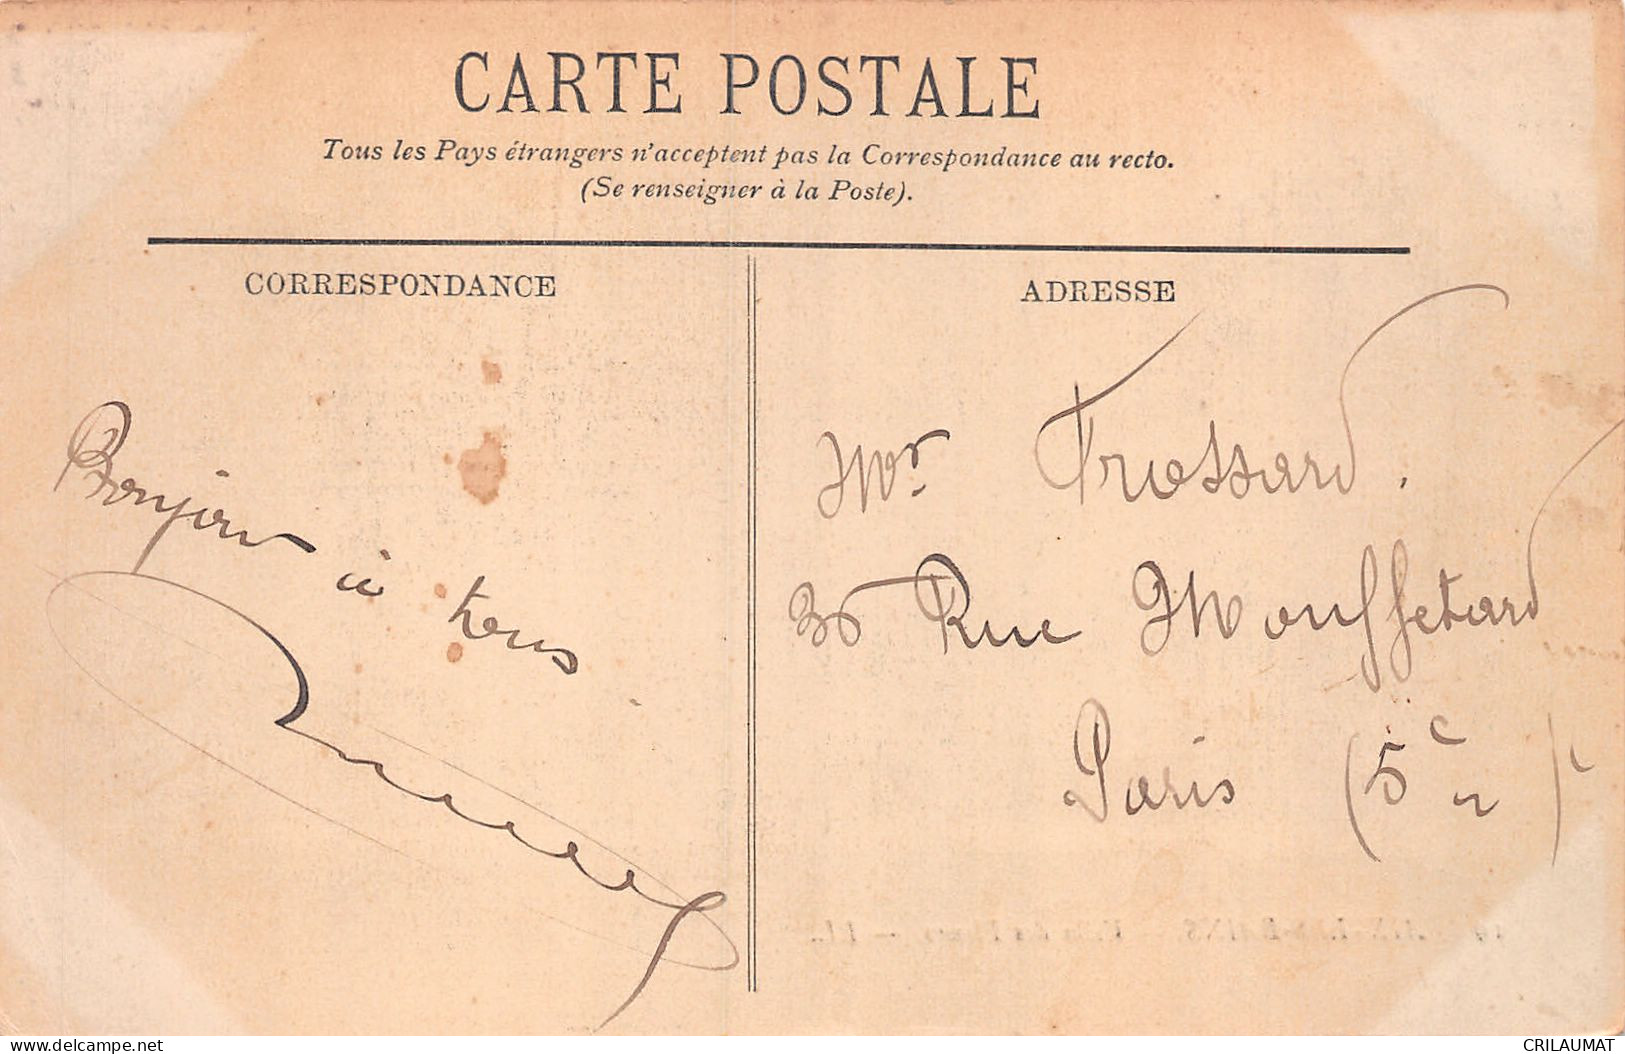 CARTE POSTALE
Tous les Pays étrangers n'acceptent pas la Correspondance au recto.
(Se renseigner à la Poste).
CORRESPONDANCE
ADRESSE
Bonjour
à tous
Mr. Frossard.
36 Rue Mouffetard
Paris (5e
delcampe.net
CRILAUMAT